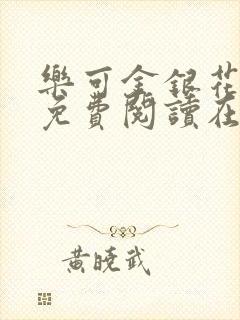 樂可金銀花
免費閱讀在
黃曉武